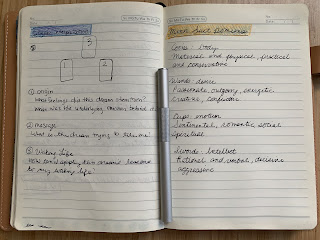 Dream Interpretation
3
2
① Origin
What feelings did this dream stem from?
What was the underlying
② Message
What is this dream trying to tell me?
③ Waking Life
How can I apply this dreams lessons
to my waking life?
Minor Suit Differences
Coins: Body
Material and physical, practical
and conservative
Wands: desire
Passionate, outgoing, energetic
creative, confident
Cups: emotion
Sentimental, romantic, social
spiritual
Swords: Intellect
Rational and verbal, decisive
aggressive